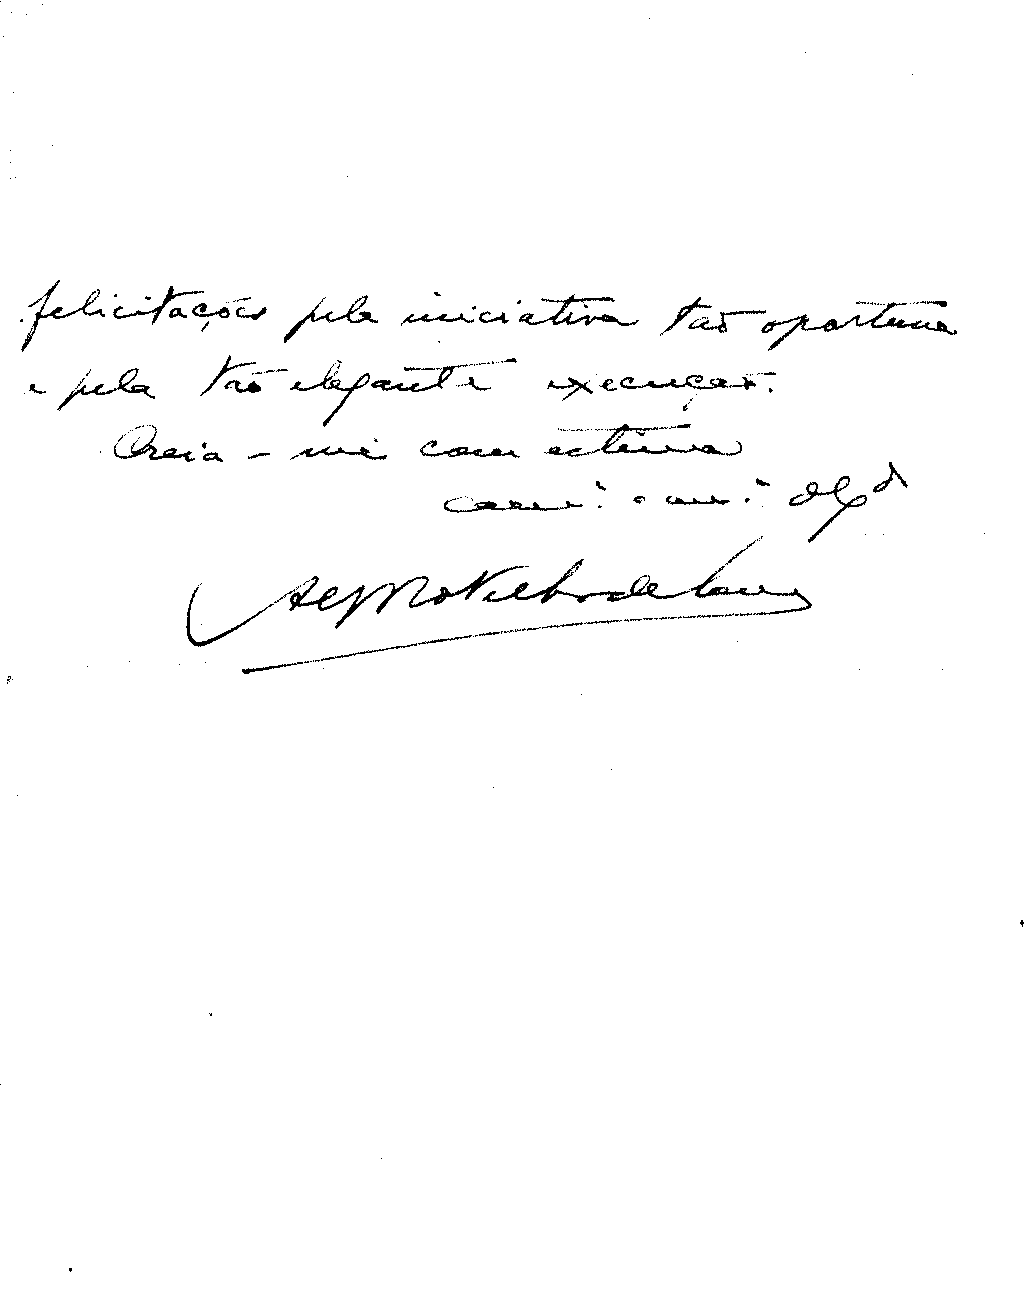 felicitações pela iniciativa tão oportuna
e pela tão elegante execução.
Creia-me com estima